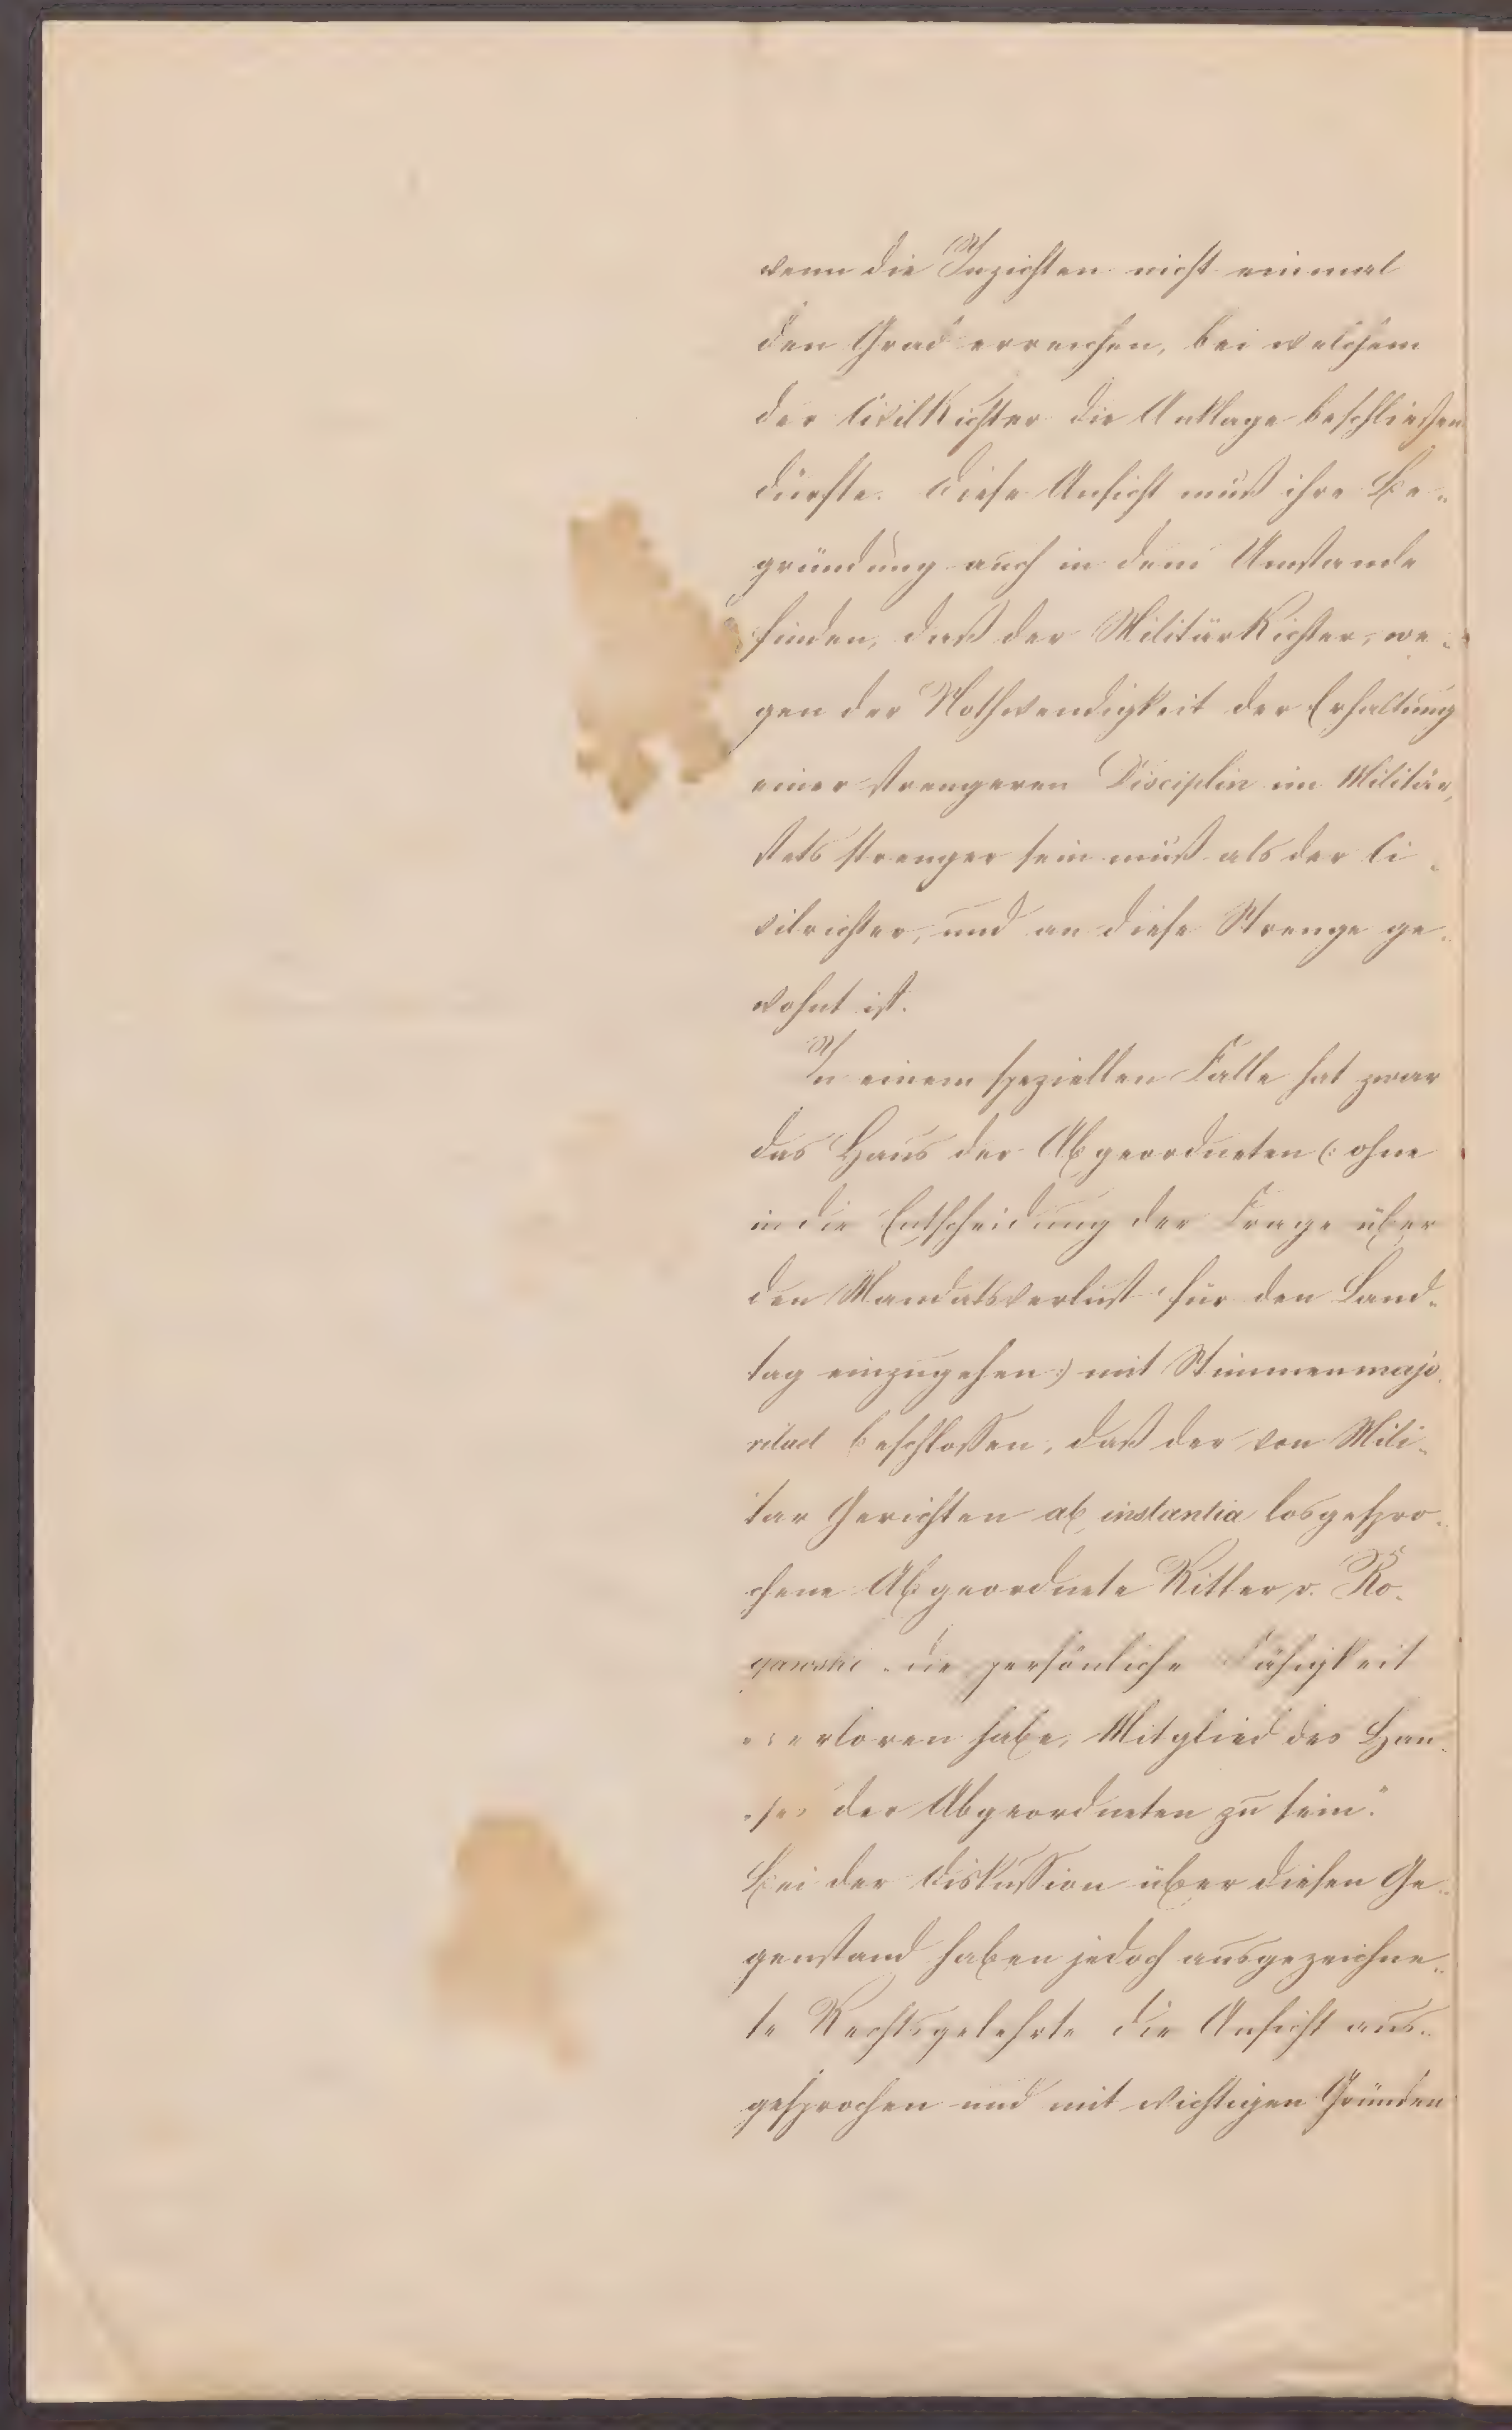 wenn die Inzichten nicht einmal
den Grad erreichen, bei welchem
der CivilRichter die Anklage beschließen
dürfte. Diese Ansicht muß ihre Be-
gründung auch in dem Umstande
finden, daß der MilitärRichter, we-
gen der Nothwendigkeit der Erhaltung
einer strengeren Disciplin im Militär,
stets strenger sein muß als der Ci-
vilrichter, und an diese Strenge ge-
wohnt ist.
In einem speziellen Falle hat zwar
das Haus der Abgeordneten (: ohne
in die Entscheidung der Frage über
den Mandatsverlust für den Land-
tag einzugehen :) mit Stimmenmajo-
ritaet beschlossen, daß der von Mili-
tär Gerichten ab instantia losgespro-
chene Abgeordnete Ritter v. Ro-
gawski „die persönliche Fähigkeit
„verloren habe, Mitglied des Hau-
„ses der Abgeordneten zu sein."
Bei der Diskussion über diesen Ge-
genstand haben jedoch ausgezeichne-
te Rechtsgelehrte die Ansicht aus-
gesprochen und mit wichtigen Gründen